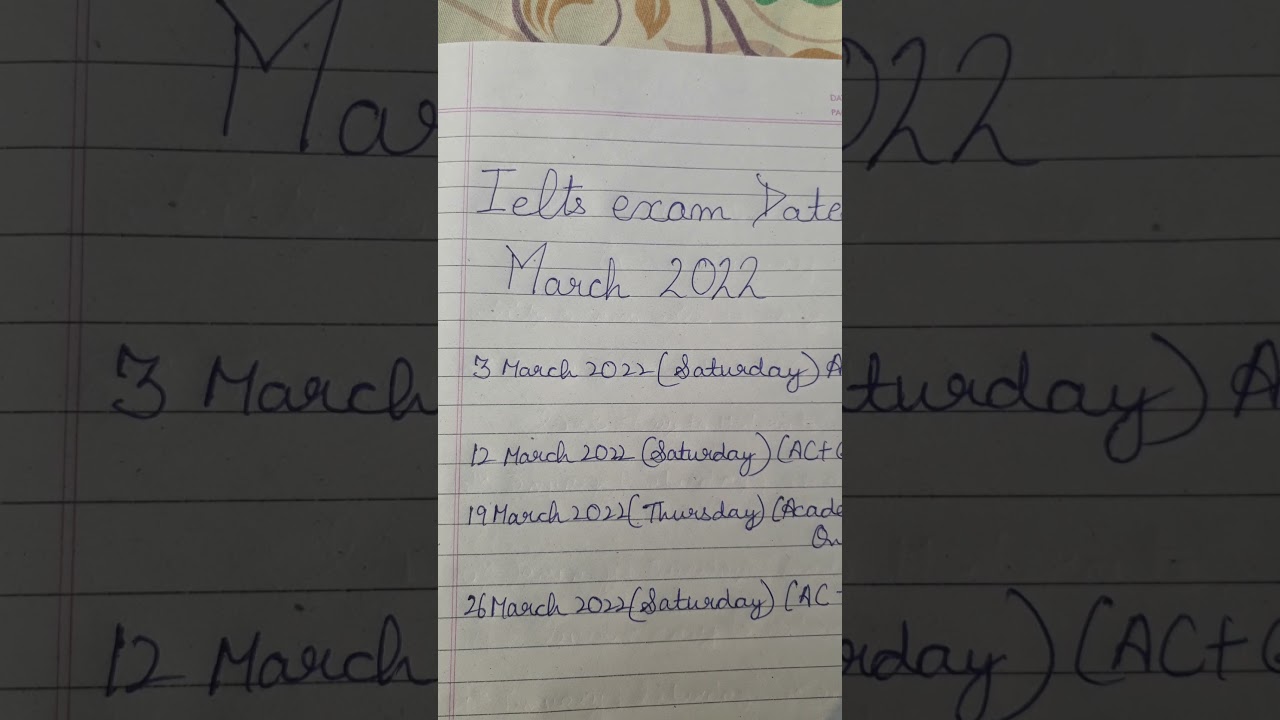 Ielts exam Date
March 2022
3 March 2022 (Saturday) A
12 March 2022 (Saturday) (AC+G
19 March 2022 (Thursday) (Acade
On
26 March 2022 (Saturday) (AC -